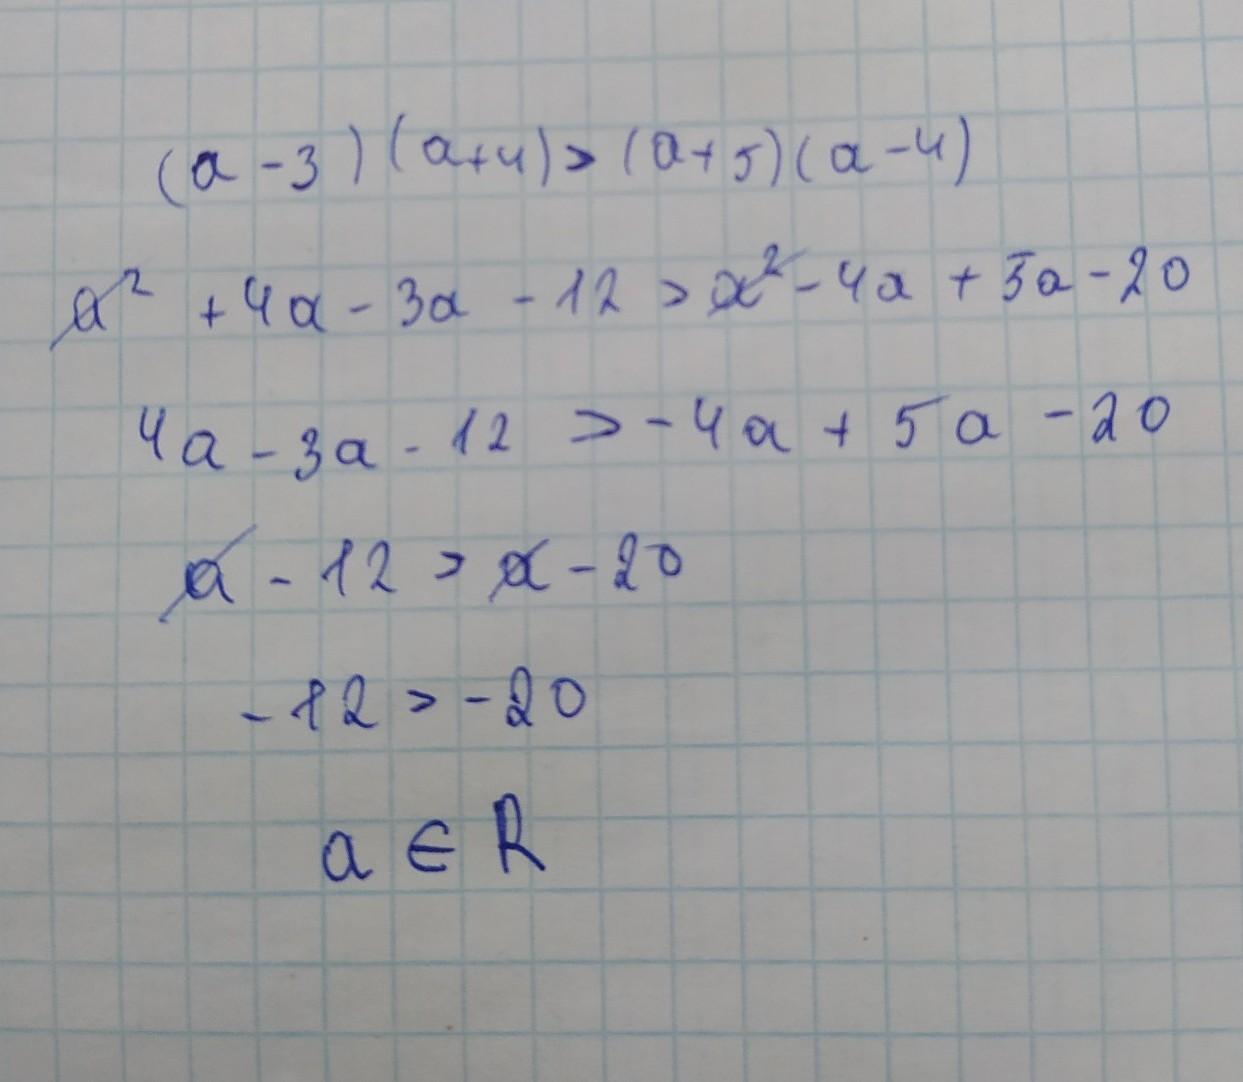 (a-3)(a+4)>(a+5)(a-4)
a² +4a-3a-12>a²-4a+5a-20
4a-3a-12>-4a+5a-20
a-12>a-20
-12>-20
a∈R